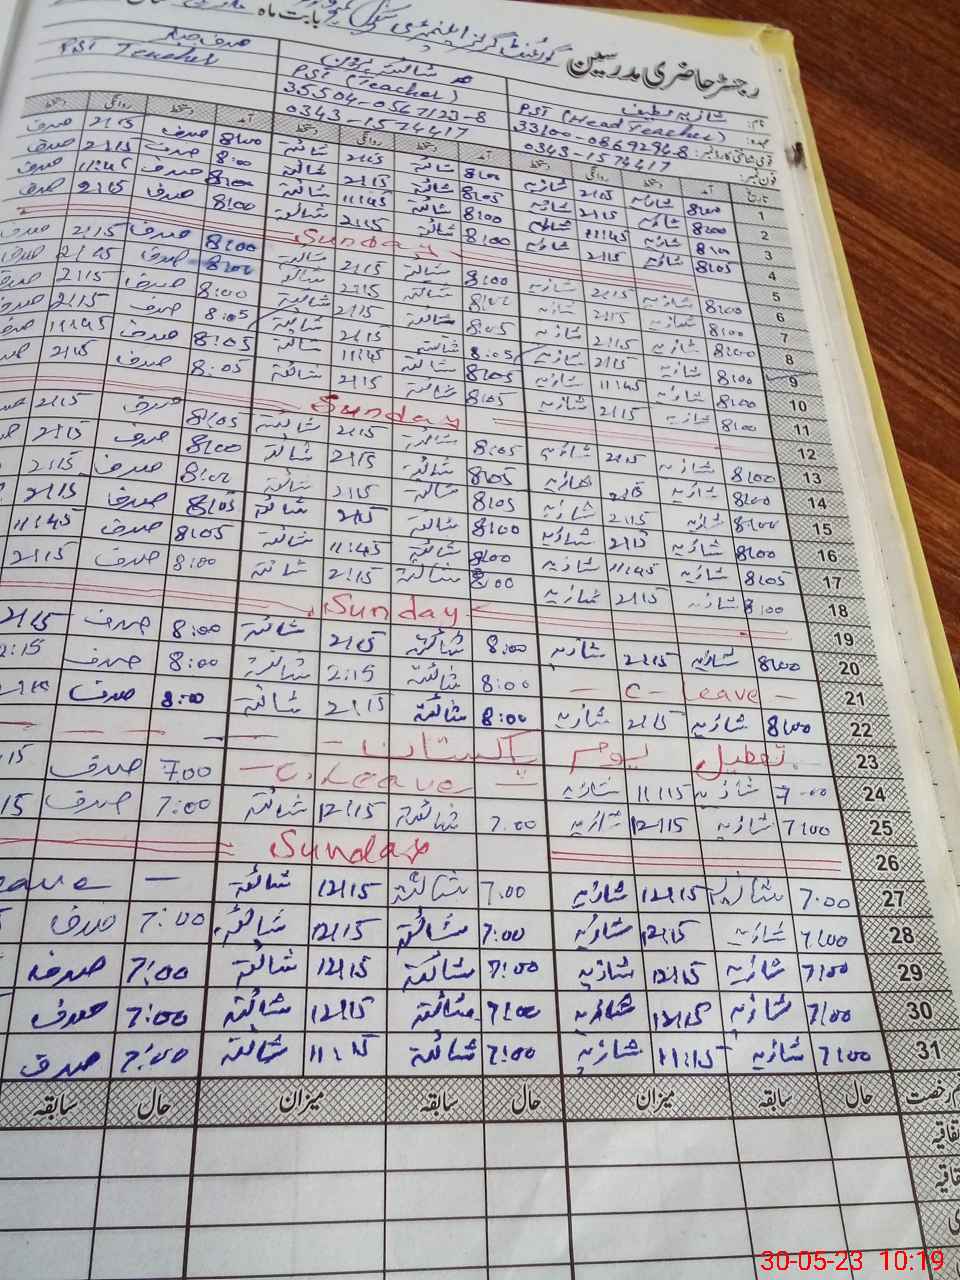 رجسٹر حاضری مدرسین گورنمنٹ گرلز ایلیمنٹری سکول بابت ماہ
نام: شازیہ لطیف شائستہ پروین صدف جبار
عہدہ: PST (Head Teacher) PST (Teacher) PST Teacher
قومی شناختی کارڈ نمبر: 33100-0869294-8 35504-0567123-8
فون نمبر: 0343-1574417 0343-1574417
تاریخ آمد دستخط روانگی دستخط آمد دستخط روانگی دستخط آمد دستخط روانگی دستخط
1 8:00 شازیہ 2:15 شازیہ 8:00 شائستہ 2:15 شائستہ 8:00 صدف 2:15 صدف
2 8:00 شازیہ 2:15 شازیہ 8:05 شائستہ 2:15 شائستہ 8:00 صدف 2:15 صدف
3 8:00 شازیہ 11:45 شازیہ 8:00 شائستہ 11:45 شائستہ 8:00 صدف 11:45 صدف
4 8:05 شازیہ 2:15 شازیہ 8:00 شائستہ 2:15 شائستہ 8:00 صدف 2:15 صدف
5 Sunday
6 8:00 شازیہ 2:15 شازیہ 8:00 شائستہ 2:15 شائستہ 8:00 صدف 2:15 صدف
7 8:00 شازیہ 2:15 شازیہ 8:00 شائستہ 2:15 شائستہ 8:00 صدف 2:15 صدف
8 8:00 شازیہ 2:15 شازیہ 8:05 شائستہ 2:15 شائستہ 8:00 صدف 2:15 صدف
9 8:00 شازیہ 2:15 شازیہ 8:05 شائستہ 2:15 شائستہ 8:05 صدف 2:15 صدف
10 8:00 شازیہ 11:45 شازیہ 8:05 شائستہ 11:45 شائستہ 8:05 صدف 11:45 صدف
11 8:00 شازیہ 2:15 شازیہ 8:05 شائستہ 2:15 شائستہ 8:05 صدف 2:15 صدف
12 Sunday
13 8:00 شازیہ 2:15 شازیہ 8:05 شائستہ 2:15 شائستہ 8:05 صدف 2:15
14 8:00 شازیہ 2:15 شازیہ 8:05 شائستہ 2:15 شائستہ 8:00 صدف 2:15
15 8:00 شازیہ 2:15 شازیہ 8:05 شائستہ 2:15 شائستہ 8:00 صدف 2:15
16 8:00 شازیہ 2:15 شازیہ 8:00 شائستہ 2:15 شائستہ 8:05 صدف 2:15
17 8:05 شازیہ 11:45 شازیہ 8:00 شائستہ 11:45 شائستہ 8:05 صدف 11:45
18 8:00 شازیہ 2:15 شازیہ 8:00 شائستہ 2:15 شائستہ 8:00 صدف 2:15
19 Sunday
20 8:00 شازیہ 2:15 شازیہ 8:00 شائستہ 2:15 شائستہ 8:00 صدف 2:15
21 - C-Leave - 8:00 شائستہ 2:15 شائستہ 8:00 صدف 2:15
22 8:00 شازیہ 2:15 شازیہ 8:00 شائستہ 2:15 شائستہ 8:00 صدف
23 تعطیل یوم پاکستان
24 7:00 شازیہ 11:15 شازیہ - C.Leave - 7:00 صدف
25 7:00 شازیہ 12:15 شازیہ 7:00 شائستہ 12:15 شائستہ 7:00 صدف
26 Sunday
27 7:00 شازیہ 12:15 شازیہ 7:00 شائستہ 12:15 شائستہ
28 7:00 شازیہ 12:15 شازیہ 7:00 شائستہ 12:15 شائستہ 7:00 صدف
29 7:00 شازیہ 12:15 شازیہ 7:00 شائستہ 12:15 شائستہ 7:00 صدف
30 7:00 شازیہ 12:15 شازیہ 7:00 شائستہ 12:15 شائستہ 7:00 صدف
31 7:00 شازیہ 11:15 شازیہ 7:00 شائستہ 11:15 شائستہ 7:00 صدف
حال سابقہ میزان حال سابقہ میزان حال سابقہ
30-05-23 10:19